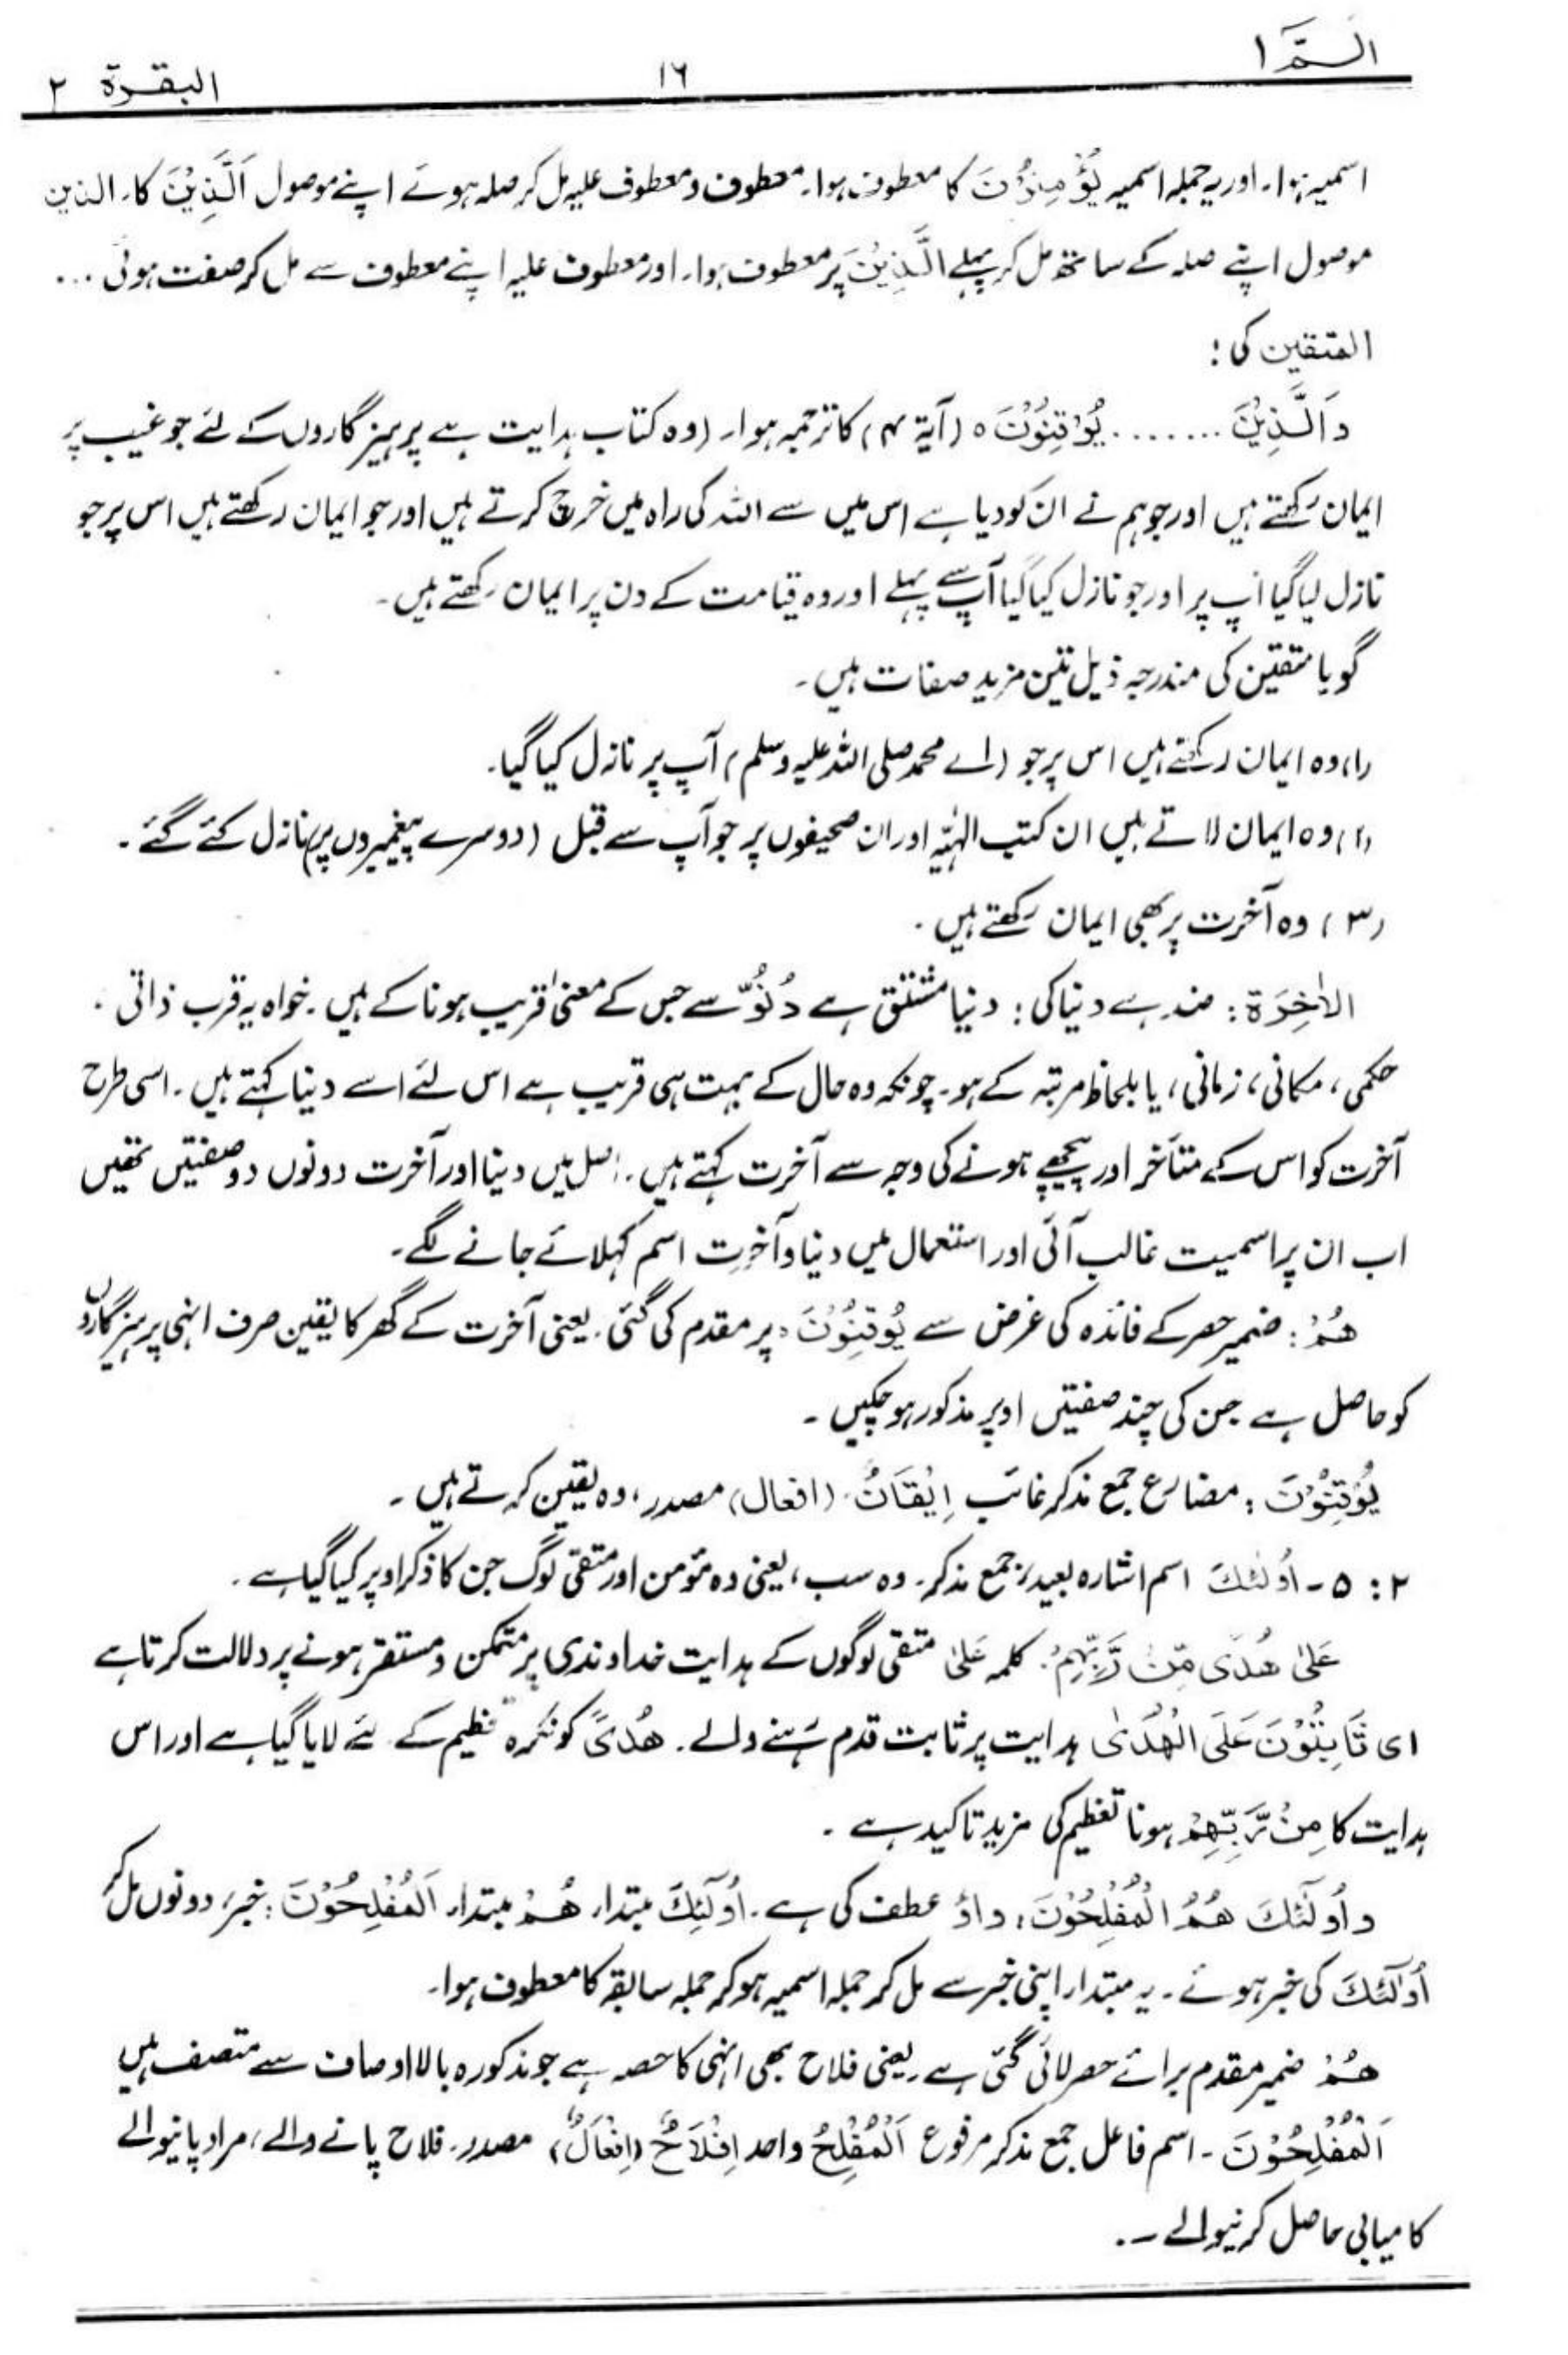 الٓمّٓ ۱
۱۶
البقرة ۲
اسمیہ ہوا۔ اور یہ جملہ اسمیہ یُؤْمِنُوْنَ کا معطوف ہوا۔ معطوف و معطوف علیہ مل کر صلہ ہوئے اپنے موصول اَلَّذِیْنَ کا۔ الذین
موصول اپنے صلہ کے ساتھ مل کر پہلے الَّذِیْنَ پر معطوف ہوا۔ اور معطوف علیہ اپنے معطوف سے مل کر صفت ہوئی ...
المتقین کی :
وَالَّذِیْنَ ........ یُوْقِنُوْنَ ہ (آیۃ ۴) کا ترجمہ ہوا۔ (وہ کتاب ہدایت ہے پرہیزگاروں کے لئے جو غیب پر
ایمان رکھتے ہیں اور جو ہم نے ان کو دیا ہے اس میں سے اللہ کی راہ میں خرچ کرتے ہیں اور جو ایمان رکھتے ہیں اس پر جو
نازل کیا گیا آپ پر اور جو نازل کیا گیا آپ سے پہلے اور وہ قیامت کے دن پر ایمان رکھتے ہیں۔
گویا متقین کی مندرجہ ذیل تین مزید صفات ہیں۔
(۱) وہ ایمان رکھتے ہیں اس پر جو (اے محمد صلی اللہ علیہ وسلم) آپ پر نازل کیا گیا۔
(۲) وہ ایمان لاتے ہیں ان کتب الٰہیہ اور ان صحیفوں پر جو آپ سے قبل (دوسرے پیغمبروں پر) نازل کئے گئے۔
(۳) وہ آخرت پر بھی ایمان رکھتے ہیں۔
الاٰخِرَة : ضد ہے دنیا کی : دنیا مشتق ہے دُنُوٌّ سے جس کے معنیٰ قریب ہونا کے ہیں۔ خواہ یہ قرب ذاتی ۔
حکمی، مکانی، زمانی، یا بلحاظ مرتبہ کے ہو۔ چونکہ وہ حال کے بہت ہی قریب ہے اس لئے اسے دنیا کہتے ہیں۔ اسی طرح
آخرت کو اس کے متأخر اور پیچھے ہونے کی وجہ سے آخرت کہتے ہیں۔ اصل میں دنیا اور آخرت دونوں دو صفتیں تھیں
اب ان پر اسمیت غالب آئی اور استعمال میں دنیا و آخرت اسم کہلائے جانے لگے۔
هُمْ : ضمیر حصر کے فائدہ کی غرض سے یُوْقِنُوْنَ پر مقدم کی گئی۔ یعنی آخرت کے گھر کا یقین صرف انہی پرہیزگاروں
کو حاصل ہے جن کی چند صفتیں اوپر مذکور ہو چکیں۔
یُوْقِنُوْنَ : مضارع جمع مذکر غائب اِیْقَانٌ (افعال) مصدر، وہ یقین کرتے ہیں۔
۲ : ۵ - اُولٰئِكَ اسم اشارہ بعید، جمع مذکر۔ وہ سب، یعنی وہ مؤمن اور متقی لوگ جن کا ذکر اوپر کیا گیا ہے۔
عَلیٰ هُدًی مِّنْ رَّبِّهِمْ : کلمہ عَلیٰ متقی لوگوں کے ہدایت خداوندی پر متمکن و مستقر ہونے پر دلالت کرتا ہے
ای ثَابِتُوْنَ عَلَی الْهُدٰی ہدایت پر ثابت قدم رہنے والے۔ هُدًی کو نکرہ تعظیم کے لئے لایا گیا ہے اور اس
ہدایت کا مِنْ رَّبِّهِمْ ہونا تعظیم کی مزید تاکید ہے۔
وَاُولٰٓئِكَ هُمُ الْمُفْلِحُوْنَ : واؤ عطف کی ہے۔ اُولٰٓئِكَ مبتدا، هُمْ مبتدا، اَلْمُفْلِحُوْنَ : خبر، دونوں مل کر
اُولٰٓئِكَ کی خبر ہوئے۔ یہ مبتدا اپنی خبر سے مل کر جملہ اسمیہ ہو کر جملہ سابقہ کا معطوف ہوا۔
هُمْ ضمیر مقدم برائے حصر لائی گئی ہے۔ یعنی فلاح بھی انہی کا حصہ ہے جو مذکورہ بالا اوصاف سے متصف ہیں
اَلْمُفْلِحُوْنَ - اسم فاعل جمع مذکر مرفوع اَلْمُفْلِحُ واحد اِفْلَاحٌ (اِفْعَالٌ) مصدر۔ فلاح پانے والے، مراد پانیوالے
کامیابی حاصل کرنیوالے ۔